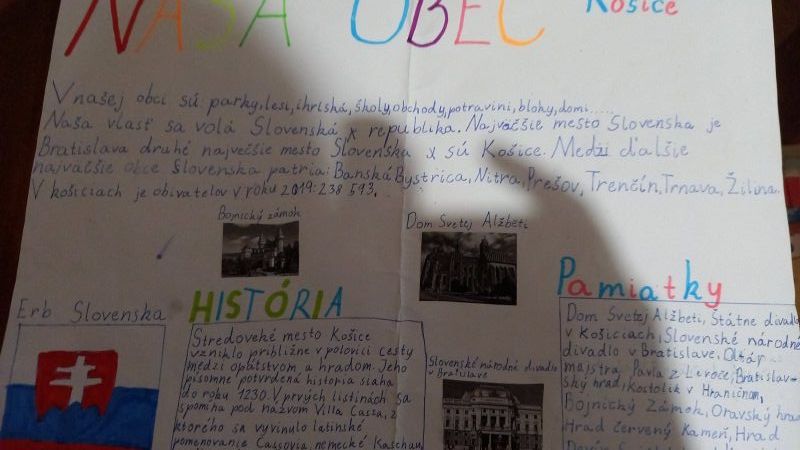 NAŠA OBEC Košice
V našej obci sú parky, lesi, ihriská, školy, obchody, potravini, bloky, domi.....
Naša vlasť sa volá Slovenská x republika. Najväčšie mesto Slovenska je
Bratislava druhé največšie mesto Slovenska x sú Košice. Medzi ďalšie
najväčšie obce Slovenska patria: Banská Bystrica, Nitra, Prešov, Trenčín, Trnava, Žilina.
V košiciach je obivateľov v roku 2019: 238 593.
Bojnický zámok
Dom Svetej Alžbeti
Erb Slovenska
HISTÓRIA
Stredoveké mesto Košice
vzniklo približne v polovici cesty
medzi opátstvom a hradom. Jeho
písomne potvrdená história siaha
do roku 1230. V prvých listinách sa
spomína pod názvom Villa Cassa, z
ktorého sa vyvinulo latinské
pomenovanie Cassovia, nemecké Kaschau
Slovenské národné divadlo
v Bratislave
Pamiatky
Dom Svetej Alžbeti, Štátne divadlo
v Košiciach, Slovenské národné
divadlo v Bratislave, Oltár
majstra Pavla z Levoče, Bratislav-
ský hrad, Kostolík v Hraničnom,
Bojnický Zámok, Oravský hrad
Hrad červený Kameň, Hrad